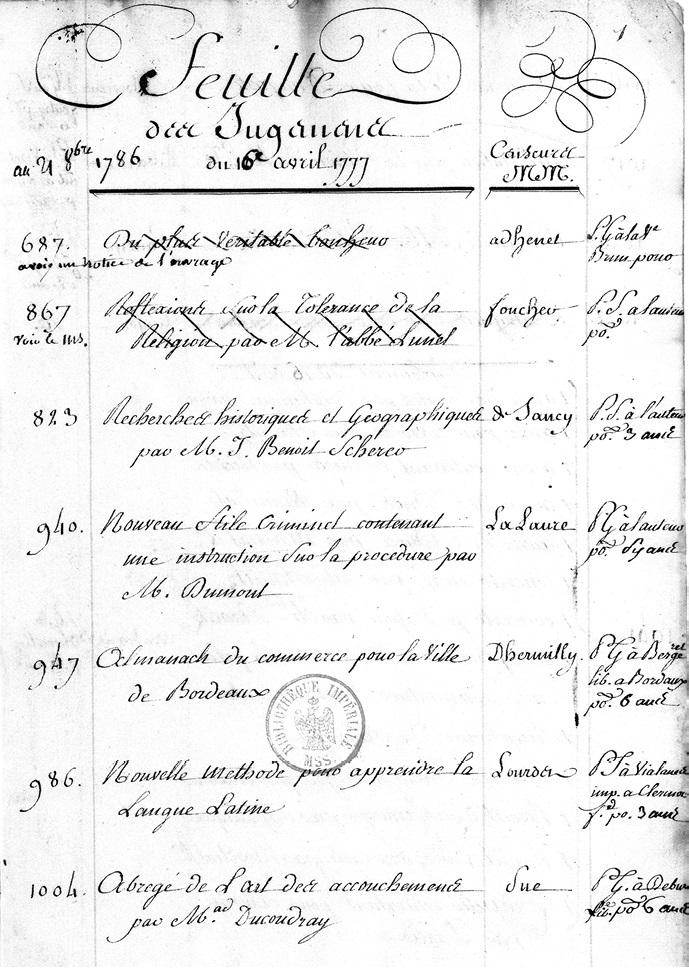 1
Feuille
des Jugemens
au 21 8bre 1786 du 16e avril 1777
Censeurs
MM.
687. Du plus veritable bonheur adhenet P. G. à la Ve
avoir un Notice de l'ouvrage Brun pour
867 Reflexions sur la Tolerance de la foucher P. S. a lauteur
voir le ms. Religion par M. l'abbé Lunel po.
823 Recherches historiques et Geographiques de Sancy P. S. à l'auteur
par M. J. Benoit Scherer po. 3 ans
940. Nouveau stile Criminel contenant La Laure P G à lauteur
une instruction sur la procedure par po. ans
M. Dumont
947 Almanach du commerce pour la Ville Dhermilly P G à Bergeret
de Bordeaux lib. a Bordaux
po. 6 ans
BIBLIOTHÈQUE IMPÉRIALE
MSS.
986. Nouvelle Methode pour apprendre la Lourdet P S à Vialanes
Langue Latine imp. a Clermo
fd. po. 3 ans
1004. Abregé de L'art des accouchemens Sue P G. à Debur
par Mad Ducoudray lib. po. 6 ans